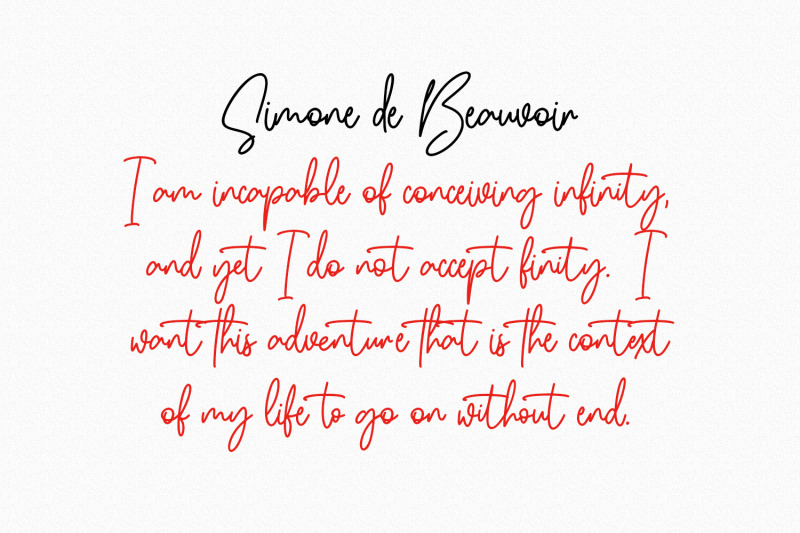 Simone de Beauvoir
I am incapable of conceiving infinity,
and yet I do not accept finity. I
want this adventure that is the context
of my life to go on without end.